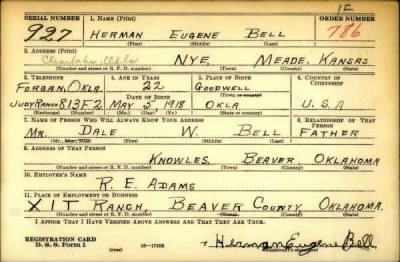 1E
SERIAL NUMBER 1. NAME (Print) ORDER NUMBER
927 HERMAN EUGENE BELL 786
(First) (Middle) (Last)
2. ADDRESS (Print)
NYE, MEADE, KANSAS
(Number and street or R. F. D. number) (Town) (County) (State)
3. TELEPHONE 4. AGE IN YEARS 5. PLACE OF BIRTH 6. COUNTRY OF CITIZENSHIP
FORGAN, OKLA. 22 GOODWELL
(Town or county)
JUDY RANCH 813F2 MAY 5, 1918 OKLA U. S. A
(Mo.) (Day) (Yr.) (State or country)
7. NAME OF PERSON WHO WILL ALWAYS KNOW YOUR ADDRESS 8. RELATIONSHIP OF THAT PERSON
MR. DALE W. BELL FATHER
(Mr., Mrs., Miss) (First) (Middle) (Last)
9. ADDRESS OF THAT PERSON
KNOWLES, BEAVER, OKLAHOMA
(Number and street or R. F. D. number) (Town) (County) (State)
10. EMPLOYER'S NAME
R. E. ADAMS
11. PLACE OF EMPLOYMENT OR BUSINESS
X I T RANCH, BEAVER COUNTY, OKLAHOMA.
(Number and street or R. F. D. number) (Town) (County) (State)
I AFFIRM THAT I HAVE VERIFIED ABOVE ANSWERS AND THAT THEY ARE TRUE.
REGISTRATION CARD
D. S. S. Form 1 16—17105 Herman Eugene Bell